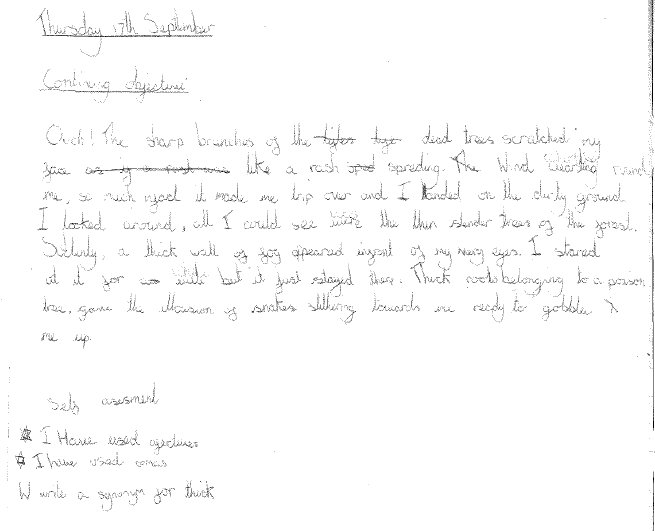 Thursday 17th September
Continuing objective
Ouch! The sharp brunches of the dead trees scratched my
face like a rash spreding. The Wind
me, so much it made me trip over and I landed on the dirty ground
I looked around, all I could see the thin slender trees of the forest.
Sudenly, a thick wall of fog apeared infront of my very eyes. I stared
at it for but it just stayed there. Thick roots belonging to a poison
tree, gave the illusion of snakes slithering towards me ready to gobble
me up.
Self assesment
I Have used ajectives
I have used comas
W write a synonym for thick